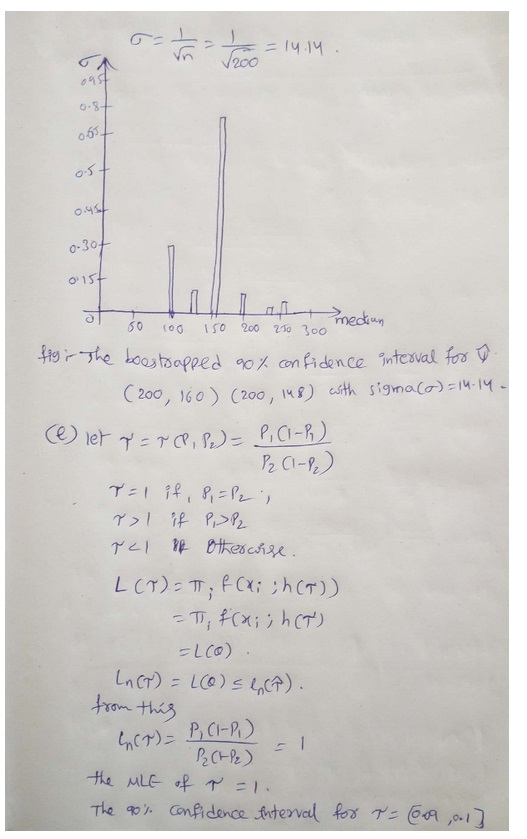 σ = 1/√n = 1/√200 = 14.14.
σ
0.95
0.8
0.65
0.5
0.45
0.30
0.15
0
50 100 150 200 250 300 median
fig:- The boostrapped 90% confidence interval for ψ̂
(200, 160) (200, 148) with sigma(σ)=14.14.
(e) let τ = τ(P1,P2) = P1(1-P1)/P2(1-P2)
τ=1 if, P1=P2;
τ>1 if P1>P2
τ<1 if Otherwise.
L(τ) = πi f(xi; h(τ))
= πi f(xi; h(τ)
= L(θ).
Ln(τ) = L(θ) ≤ ln(τ̂).
from this
ln(τ) = P1(1-P1)/P2(1-P2) = 1
the MLE of τ = 1.
The 90% confidence interval for τ = [0.09, 0.1]